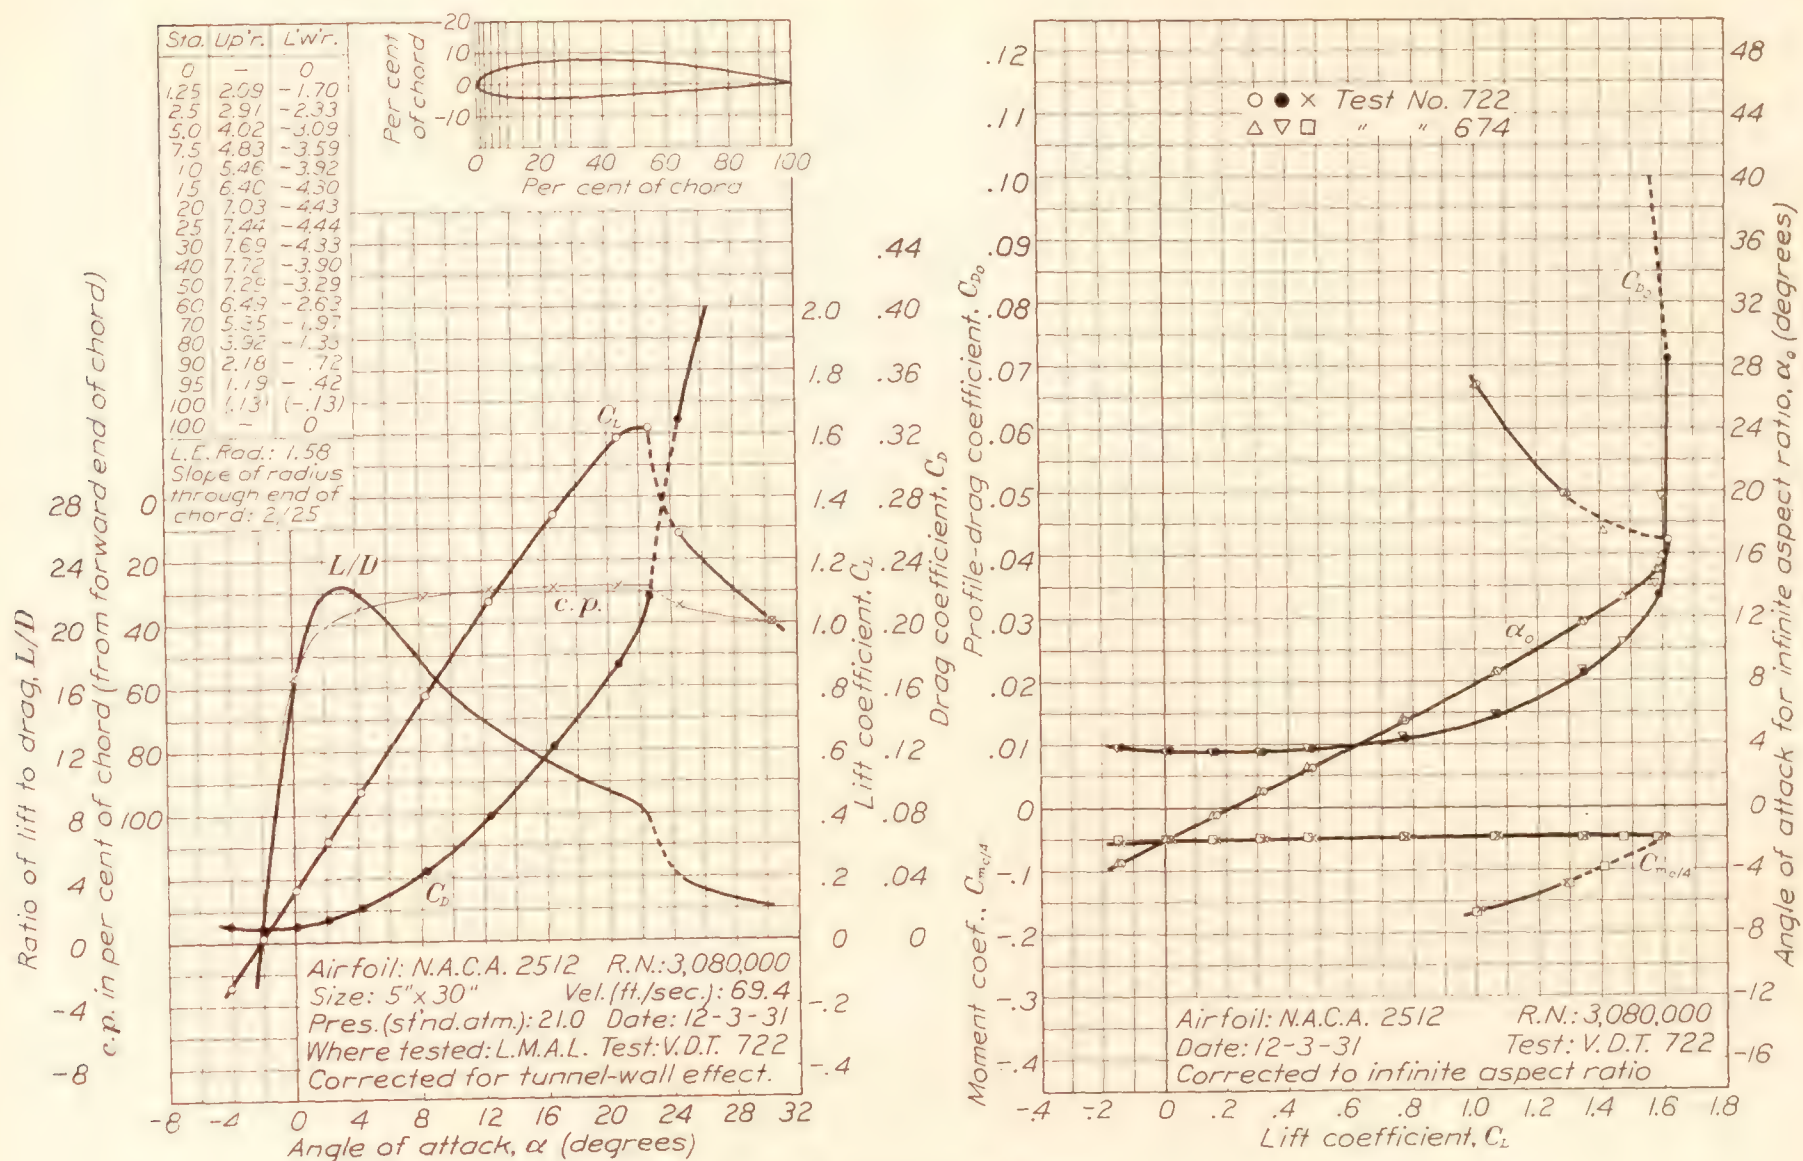 Sta. Up'r. L'w'r.
0 – 0
1.25 2.09 -1.70
2.5 2.91 -2.33
5.0 4.02 -3.09
7.5 4.83 -3.59
10 5.46 -3.92
15 6.40 -4.30
20 7.03 -4.43
25 7.44 -4.44
30 7.69 -4.33
40 7.72 -3.90
50 7.29 -3.29
60 6.49 -2.63
70 5.35 -1.97
80 3.92 -1.33
90 2.18 -.72
95 1.19 -.42
100 (.13) (-.13)
100 – 0
L.E. Rad.: 1.58
Slope of radius
through end of
chord: 2/25
Per cent
of chord
20
10
0
-10
0 20 40 60 80 100
Per cent of chord
Ratio of lift to drag, L/D
28
24
20
16
12
8
4
0
-4
-8
c.p. in per cent of chord (from forward end of chord)
0
20
40
60
80
100
L/D
c.p.
C_L
C_D
2.0
1.8
1.6
1.4
1.2
1.0
.8
.6
.4
.2
0
-.2
-.4
Lift coefficient, C_L
.44
.40
.36
.32
.28
.24
.20
.16
.12
.08
.04
0
Drag coefficient, C_D
Airfoil: N.A.C.A. 2512 R.N.: 3,080,000
Size: 5"x30" Vel.(ft./sec.): 69.4
Pres.(st'nd. atm.): 21.0 Date: 12-3-31
Where tested: L.M.A.L. Test: V.D.T. 722
Corrected for tunnel-wall effect.
-8 -4 0 4 8 12 16 20 24 28 32
Angle of attack, α (degrees)
Profile-drag coefficient, C_D0
.12
.11
.10
.09
.08
.07
.06
.05
.04
.03
.02
.01
0
Moment coef., C_mc/4
-.1
-.2
-.3
-.4
○ ● × Test No. 722
△ ▽ □ " " 674
C_D0
α_0
C_mc/4
48
44
40
36
32
28
24
20
16
12
8
4
0
-4
-8
-12
-16
Angle of attack for infinite aspect ratio, α_0 (degrees)
Airfoil: N.A.C.A. 2512 R.N.: 3,080,000
Date: 12-3-31 Test: V.D.T. 722
Corrected to infinite aspect ratio
-.4 -.2 0 .2 .4 .6 .8 1.0 1.2 1.4 1.6 1.8
Lift coefficient, C_L